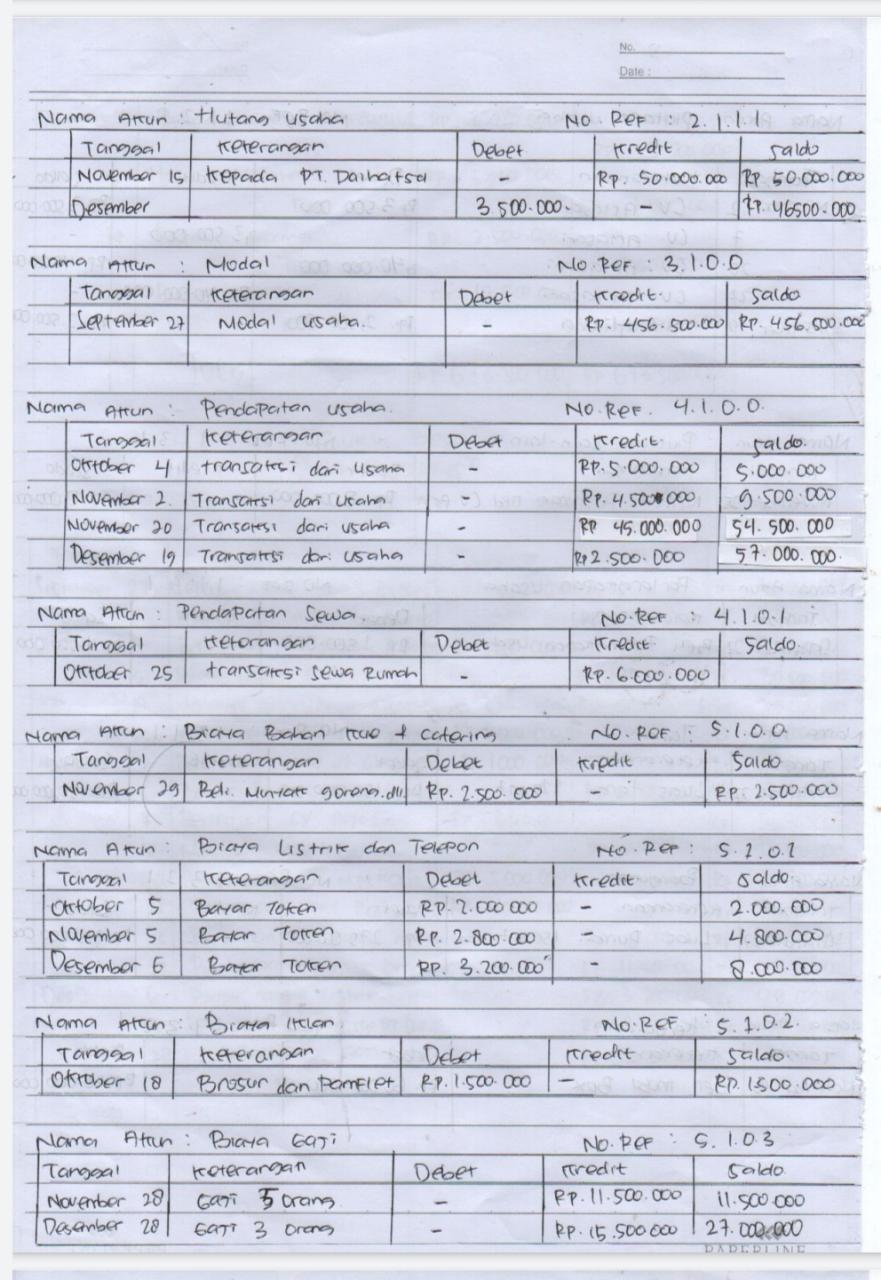 No.
Date :
Nama Akun : Hutang Usaha No Ref : 2.1.1.1
Tanggal Keterangan Debet Kredit Saldo
November 15 Kepada PT. Daihatsu - Rp. 50.000.000 Rp 50.000.000
Desember 3.500.000. - Rp. 46500.000
Nama Akun : Modal No Ref : 3.1.0.0
Tanggal Keterangan Debet Kredit Saldo
September 27 Modal Usaha. - Rp. 456.500.000 Rp. 456.500.000
Nama Akun : Pendapatan Usaha. No.Ref. 4.1.0.0.
Tanggal Keterangan Debet Kredit Saldo
Oktober 4 transaksi dari usaha - Rp.5.000.000 5.000.000
November 2. Transaksi dari Usaha - Rp. 4.500.000 9.500.000
November 20 Transaksi dari usaha - Rp 45.000.000 54.500.000
Desember 19 Transaksi dari usaha - Rp 2.500.000 57.000.000.
Nama Akun : Pendapatan Sewa. No.Ref : 4.1.0.1
Tanggal Keterangan Debet Kredit Saldo
Oktober 25 transaksi sewa Rumah - Rp. 6.000.000
Nama Akun : Biaya Bahan Kue + Catering No. Ref : 5.1.0.0
Tanggal Keterangan Debet Kredit Saldo
November 29 Beli Minyak goreng.dll. Rp. 2.500.000 - Rp. 2.500.000
Nama Akun : Biaya Listrik dan Telepon No. Ref :
Tanggal Keterangan Debet Kredit Saldo
Oktober 5 Bayar Token Rp. 2.000 000 - 2.000.000
November 5 Bayar Token Rp. 2.800.000 - 4.800.000
Desember 6 Bayar Token Rp. 3.200.000 - 8.000.000
Nama Akun : Biaya Iklan No.Ref : 5.1.0.2.
Tanggal Keterangan Debet Kredit Saldo
Oktober 18 Brosur dan Pamflet Rp.1.500.000 - Rp. 1500.000
Nama Akun : Biaya Gaji No.Ref : 5.1.0.3
Tanggal Keterangan Debet Kredit Saldo
November 28 Gaji 3 Orang - Rp. 11.500.000 11.500.000
Desember 28 Gaji 3 Orang - Rp. 15.500.000 27.000.000
PAPERLINE